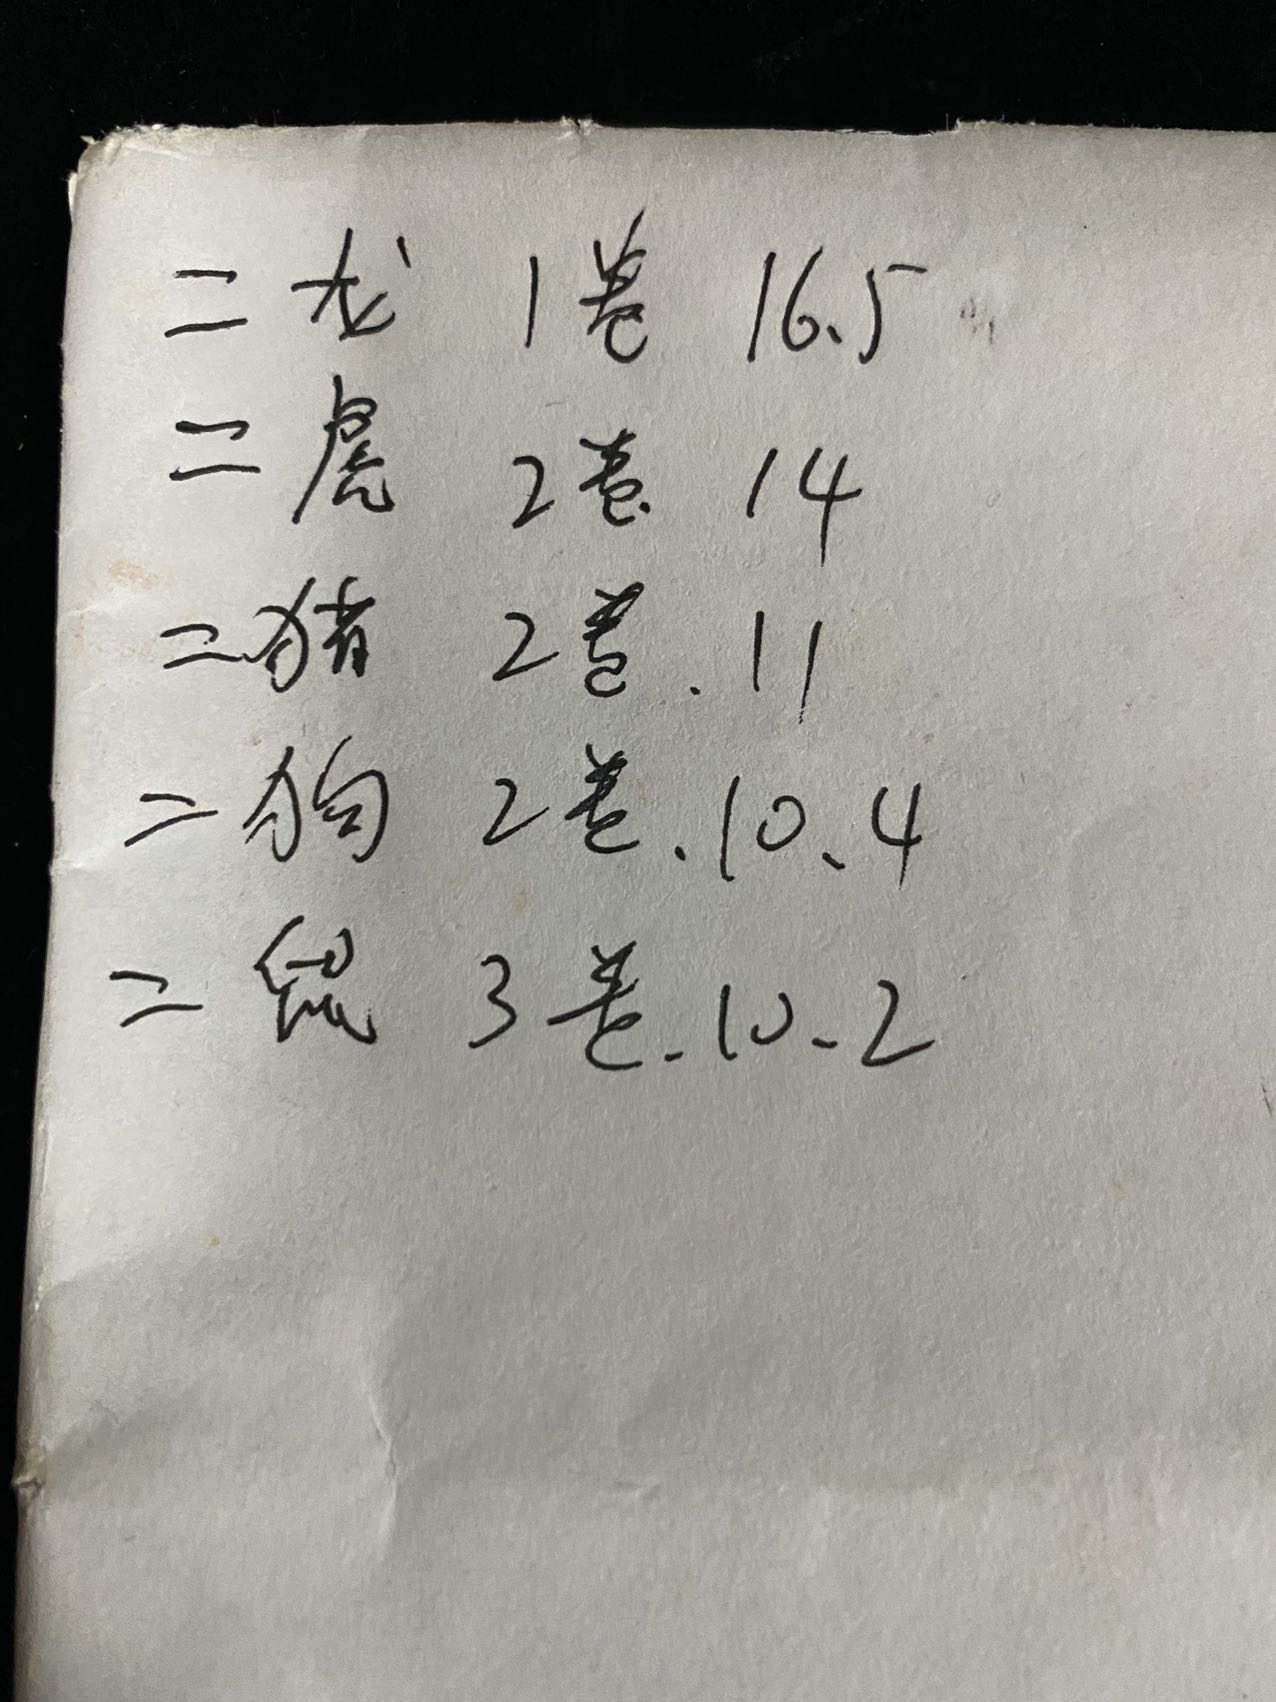 二龙 1卷 16.5
二虎 2卷 14
二猪 2卷.11
二狗 2卷.10.4
二鼠 3卷.10.2